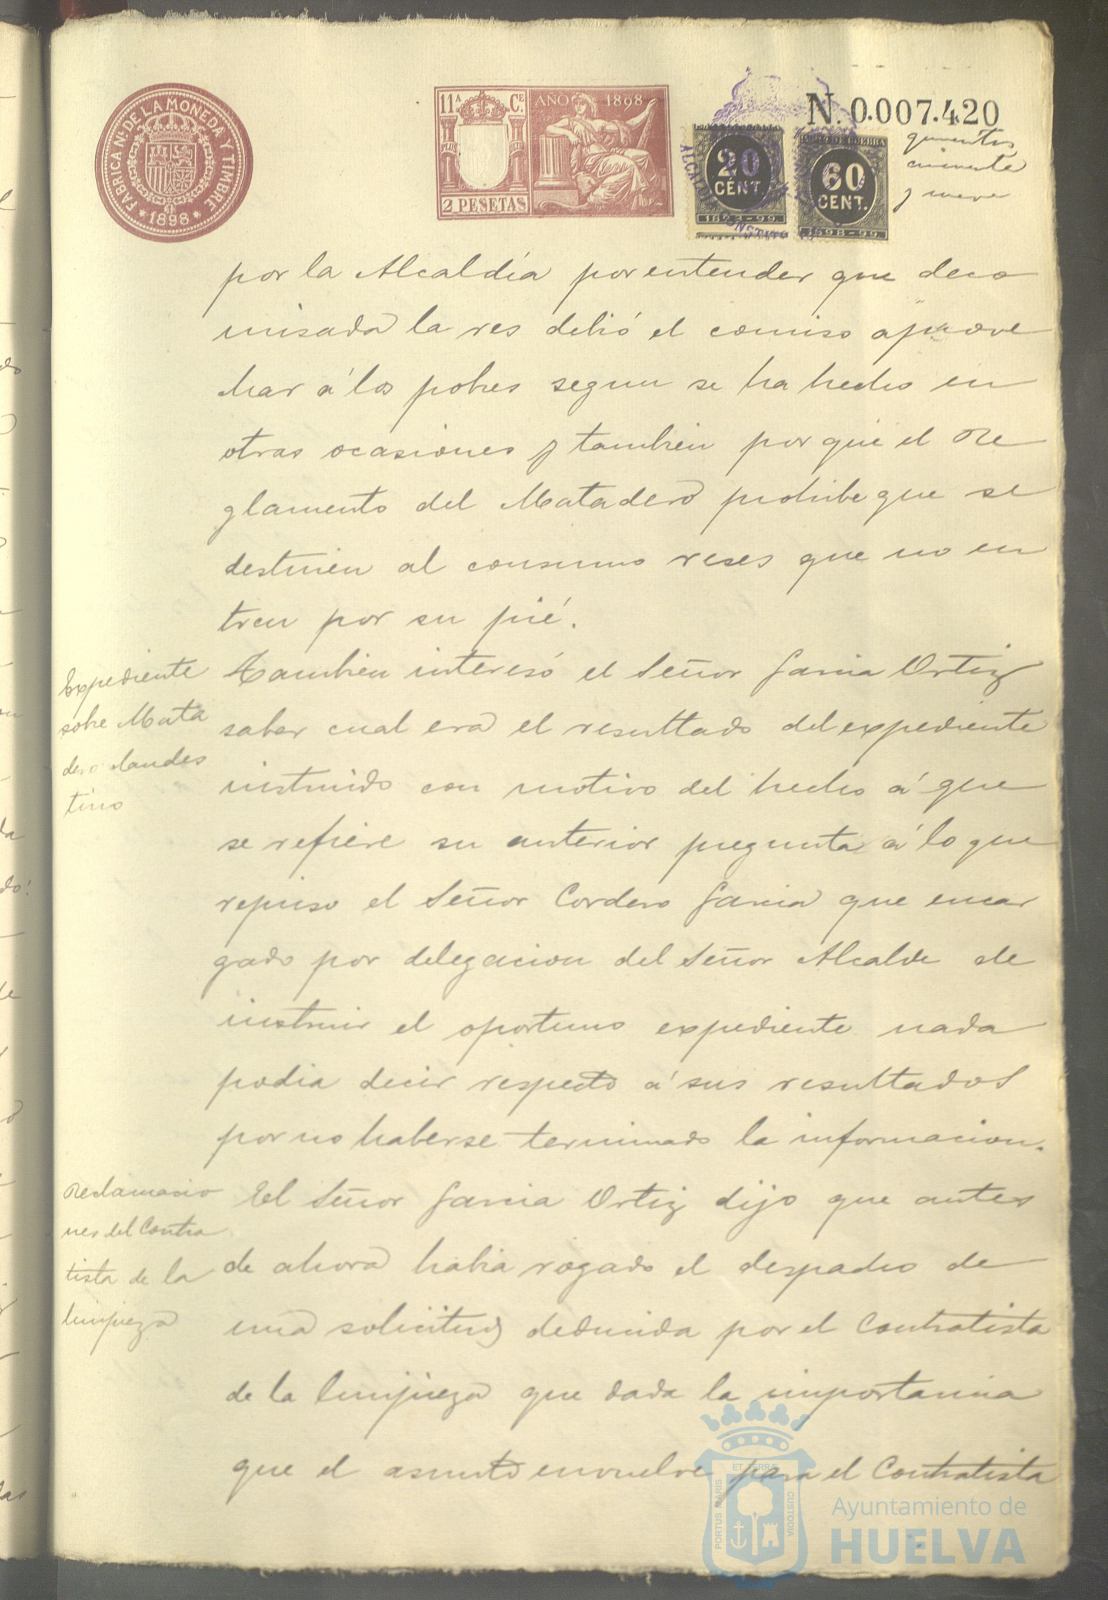 FÁBRICA Nal. DE LA MONEDA Y TIMBRE
* 1898 *
11ª Ce.
AÑO 1898
2 PESETAS
20
CÉNT.
1898-99
60
CENT.
1898-99
N. 0.007.420
quinientos
cincuenta
y nueve
por la Alcaldía por entender que deco
misada la res debió el comiso aprove
char á los pobres segun se ha hecho en
otras ocasiones y tambien por que el Re
glamento del Matadero prohibe que se
destinen al consumo reses que no en
tren por su pié.
Expediente
sobre Mata
dero clandes
tino
Tambien interesó el Señor Garcia Ortiz
saber cual era el resultado del expediente
instruido con motivo del hecho á que
se refiere su anterior pregunta á lo que
repuso el Señor Cordero Garcia que encar
gado por delegacion del Señor Alcalde de
instruir el oportuno expediente nada
podia decir respecto á sus resultados
por no haberse terminado la informacion.
Reclamacio
nes del Contra
tista de la
limpieza
El Señor Garcia Ortiz dijo que antes
de ahora habia rogado el despacho de
una solicitud deducida por el Contratista
de la limpieza que dada la importancia
que el asunto envuelve para el Contratista
PORTUS MARIS
ET TERRAE
CUSTODIA
Ayuntamiento de
HUELVA